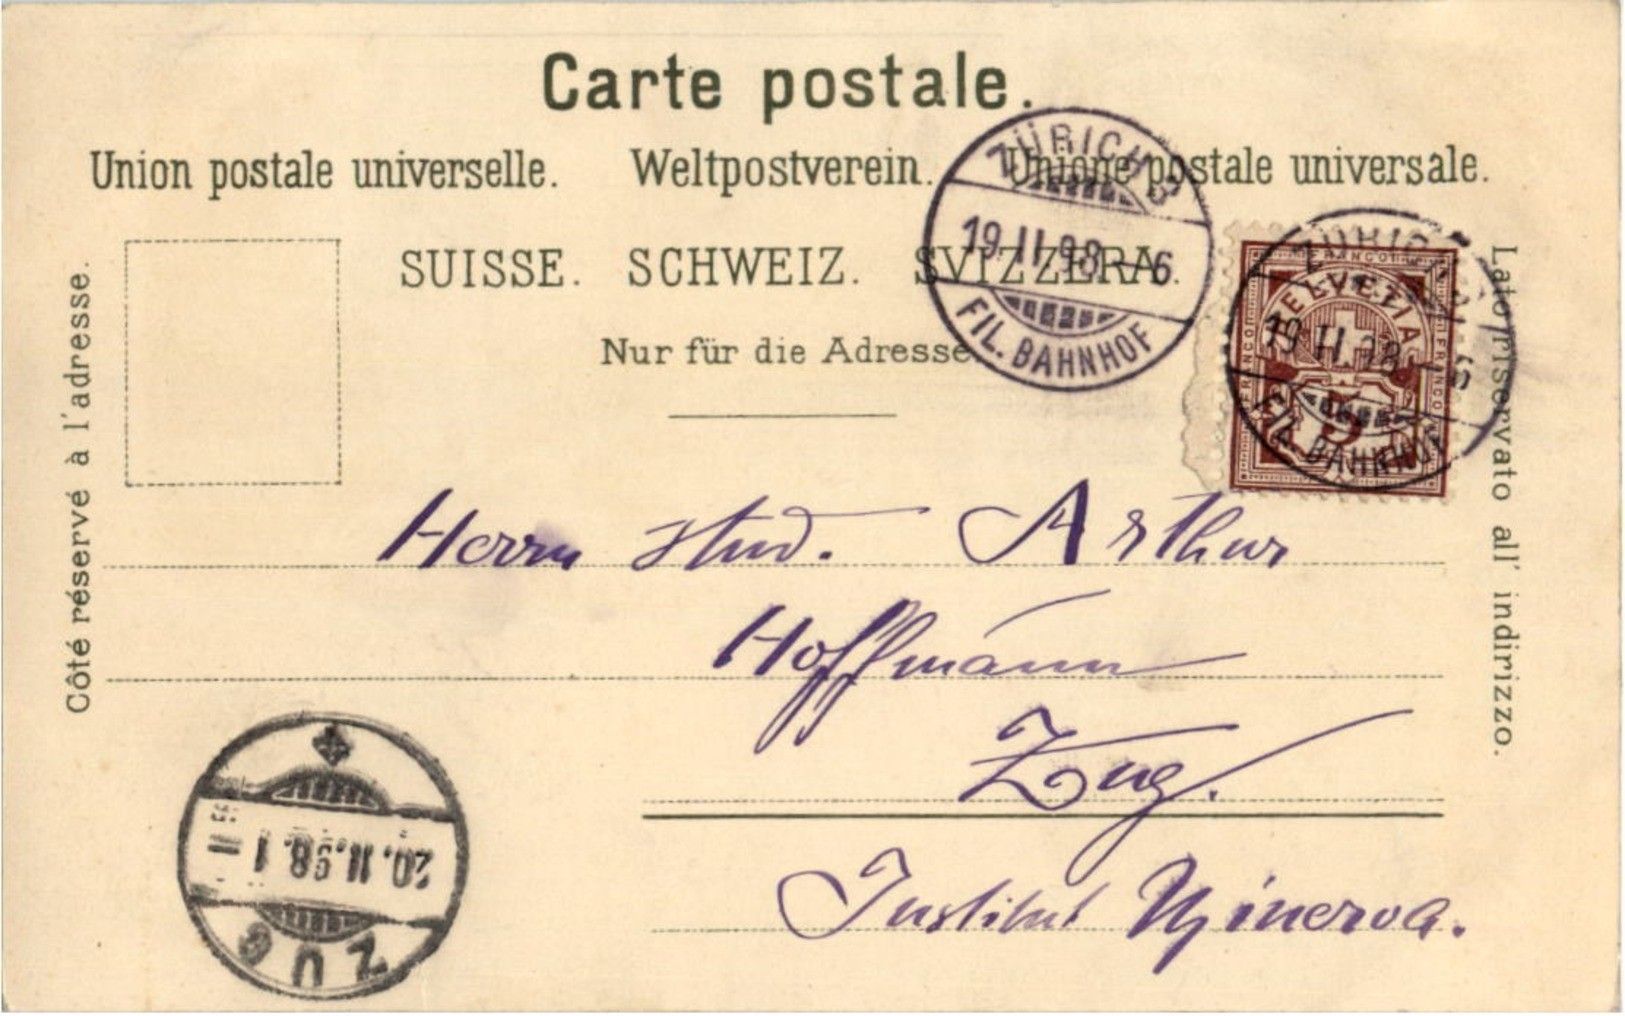 Carte postale.
Union postale universelle. Weltpostverein. Unione postale universale.
SUISSE. SCHWEIZ. SVIZZERA.
Nur für die Adresse.
Côté réservé à l'adresse.
Lato riservato all' indirizzo.
ZÜRICH 3
19.II.98.–6
FIL. BAHNHOF
FRANCO
HELVETIA
FRANCO
FRANCO
5
ZÜRICH
19.II.98.–6
FIL. BAHNHOF
Herrn stud. Arthur
Hoffmann
Zug.
Institut Minerva.
20.II.98.1
ZUG